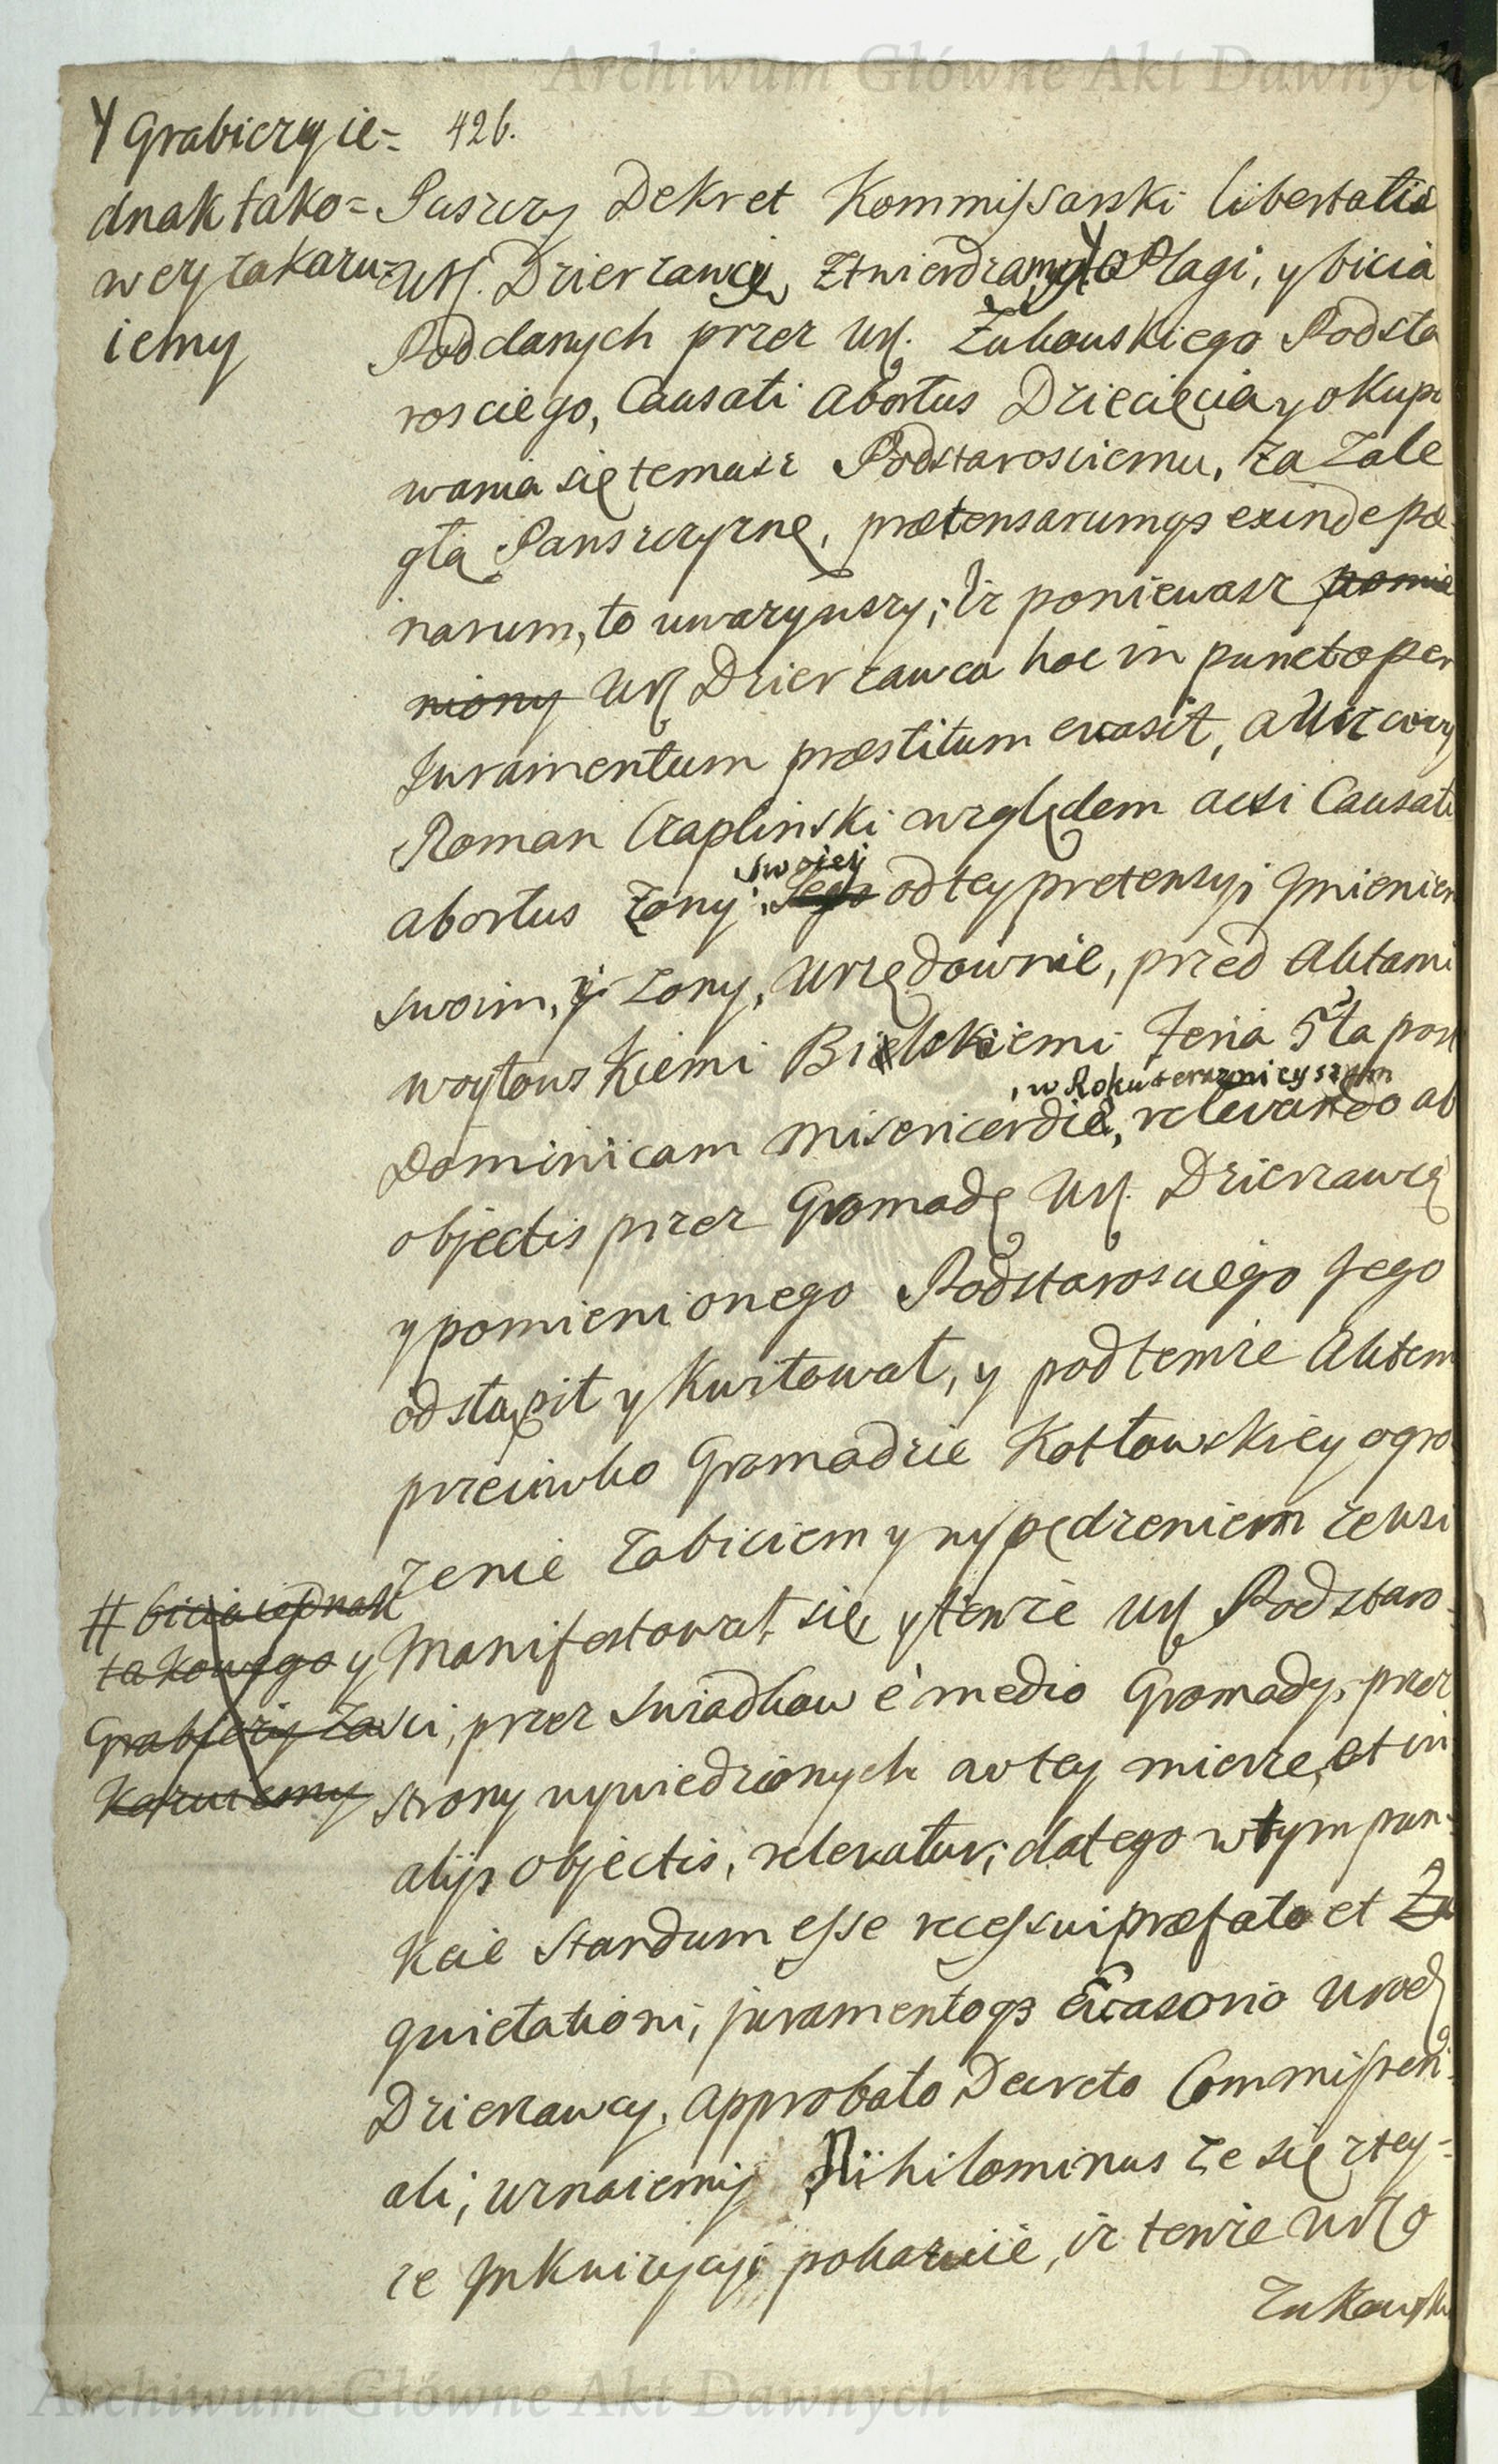 Archiwum Główne Akt Dawnych
Y Grabierzy ie=
dnak tako=
wey zakazu=
iemy
426.
Puszczy Dekret Kommissarski libertatis
Ur. Dzierzawcy, ztwierdzamy. O Plagi, y bicia
Poddanych przez Ur. Żukowskiego Podsta
rosciego, Causati abortus Dziecięcia, y okupo
wania się temusz Podstarosciemu, za zale
głą Panszczyznę, prætensarumqs exinde pœ=
narum, to uwazywszy; Iz poniewasz pomie
niony Ur. Dzierzawca hoc in puncto per
Juramentum præstitum evasit, a Ucz
Roman Czaplinski względem acti Causati
abortus zony swoiey Jego od tey pretensyi Imieniem
swoim, y zony, urzędownie, przed Aktami
woytowskiemi Bielskiemi Feria 5ta post
Dominicam misericordiæ, w Roku teraznieyszym, relevando ab
objectis przez Gromadę Ur. Dzierzawcę
y pomienionego Podstarosciego Jego
odstąpił y kwitował, y pod temże Aktem
przeciwko Gromadzie Kotłowskiey o gro=
zenie zabiciem y wypędzeniem ze wsi
# bicia iednak
takowego y
Grabierzy za
kazuiemy
Manifestował się, y tenże Ur. Podstaro=
sci, przez swiadkow è medio Gromady, przez
strony wywiedzionych w tey mierze, et in
alijs objectis, relevatur; dlatego w tym pun=
kcie standum esse recessui præfato et Zu
quietationi, juramentoqs Evasorio Urod.
Dzierzawcy, approbato Decreto Commissri=
ali, uznaiemy. Nihilominus ze się z tey=
ze Inkwizycyi pokazuie, iz tenże Ur.
Zukowski
Archiwum Główne Akt Dawnych